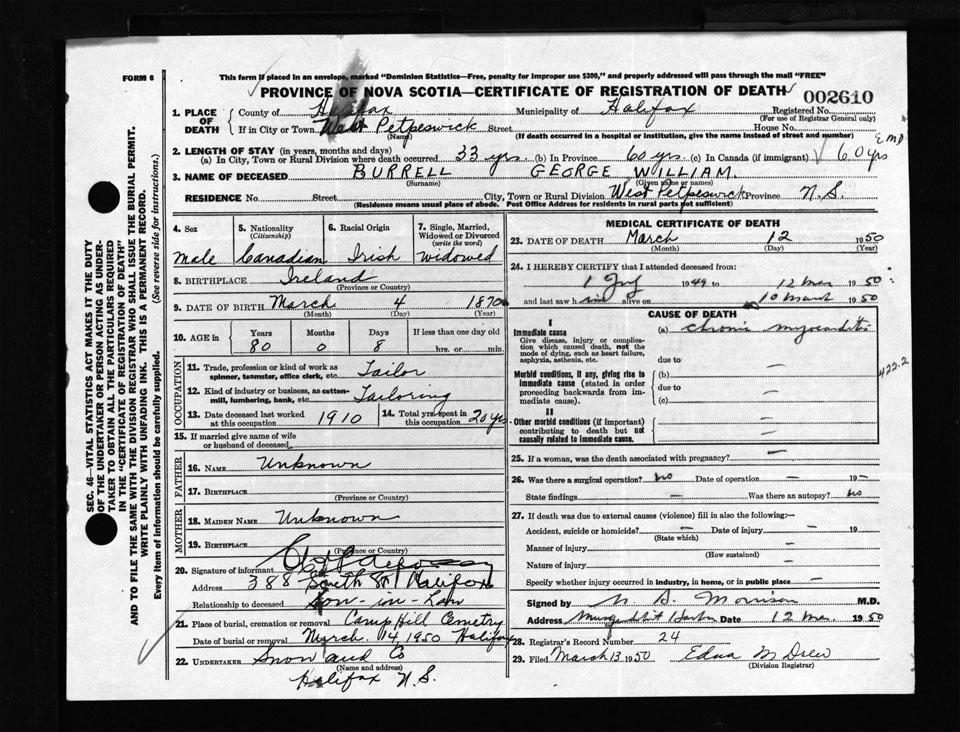 FORM 6
This form if placed in an envelope, marked "Dominion Statistics—Free, penalty for improper use $300," and properly addressed will pass through the mail "FREE"
PROVINCE OF NOVA SCOTIA—CERTIFICATE OF REGISTRATION OF DEATH
002610
1. PLACE OF DEATH
County of Halifax Municipality of Halifax Registered No.
(For use of Registrar General only)
If in City or Town West Petpeswick Street House No.
(Name) (If death occurred in a hospital or institution, give the name instead of street and number)
2. LENGTH OF STAY (in years, months and days)
(a) In City, Town or Rural Division where death occurred 33 yrs. (b) In Province 60 yrs. (c) In Canada (if immigrant) 60 yrs
3. NAME OF DECEASED BURRELL GEORGE WILLIAM.
(Surname) (Given name or names)
RESIDENCE No. Street City, Town or Rural Division West Petpeswick Province N.S.
(Residence means usual place of abode. Post Office Address for residents in rural parts not sufficient)
4. Sex 5. Nationality (Citizenship) 6. Racial Origin 7. Single, Married, Widowed or Divorced (write the word)
Male Canadian Irish widowed
8. BIRTHPLACE Ireland
(Province or Country)
9. DATE OF BIRTH March 4 1870
(Month) (Day) (Year)
10. AGE in Years Months Days If less than one day old
80 0 8 hrs. or min.
OCCUPATION
11. Trade, profession or kind of work as spinner, teamster, office clerk, etc. Tailor
12. Kind of industry or business, as cotton-mill, lumbering, bank, etc. Tailoring
13. Date deceased last worked at this occupation 1910 14. Total yrs. spent in this occupation 20 yrs
15. If married give name of wife or husband of deceased
FATHER
16. NAME Unknown
17. BIRTHPLACE
(Province or Country)
MOTHER
18. MAIDEN NAME Unknown
19. BIRTHPLACE
(Province or Country)
20. Signature of informant
Address 388 South St Halifax
Relationship to deceased Son-in-Law
21. Place of burial, cremation or removal Camp Hill Cemetry
Date of burial or removal March. 14, 1950 Halifax
22. UNDERTAKER Snow and Co
(Name and address)
Halifax N.S.
MEDICAL CERTIFICATE OF DEATH
23. DATE OF DEATH March 12 1950
(Month) (Day) (Year)
24. I HEREBY CERTIFY that I attended deceased from:
1949 to 12 Mar 1950
and last saw him alive on 10 March 1950
CAUSE OF DEATH
I
Immediate cause (a) chronic myocarditis
Give disease, injury or complication which caused death, not the mode of dying, such as heart failure, asphyxia, asthenia, etc.
due to —
Morbid conditions, if any, giving rise to immediate cause (stated in order proceeding backwards from immediate cause).
(b) —
due to —
(c) —
422.2
II
Other morbid conditions (if important) contributing to death but not causally related to immediate cause.
25. If a woman, was the death associated with pregnancy? —
26. Was there a surgical operation? no Date of operation — 19 —
State findings — Was there an autopsy? no
27. If death was due to external causes (violence) fill in also the following:—
Accident, suicide or homicide? — Date of injury — 19
(State which)
Manner of injury —
(How sustained)
Nature of injury —
Specify whether injury occurred in industry, in home, or in public place —
Signed by Morrison M.D.
Address Musquodoboit Harbor Date 12 Mar. 1950
28. Registrar's Record Number 24
29. Filed March 13 1950 Edna M Drew
(Division Registrar)
SEC. 46—VITAL STATISTICS ACT MAKES IT THE DUTY OF THE UNDERTAKER OR PERSON ACTING AS UNDERTAKER TO OBTAIN ALL THE PARTICULARS REQUIRED IN THE "CERTIFICATE OF REGISTRATION OF DEATH" AND TO FILE THE SAME WITH THE DIVISION REGISTRAR WHO SHALL ISSUE THE BURIAL PERMIT.
WRITE PLAINLY WITH UNFADING INK. THIS IS A PERMANENT RECORD.
Every item of information should be carefully supplied. (See reverse side for instructions.)